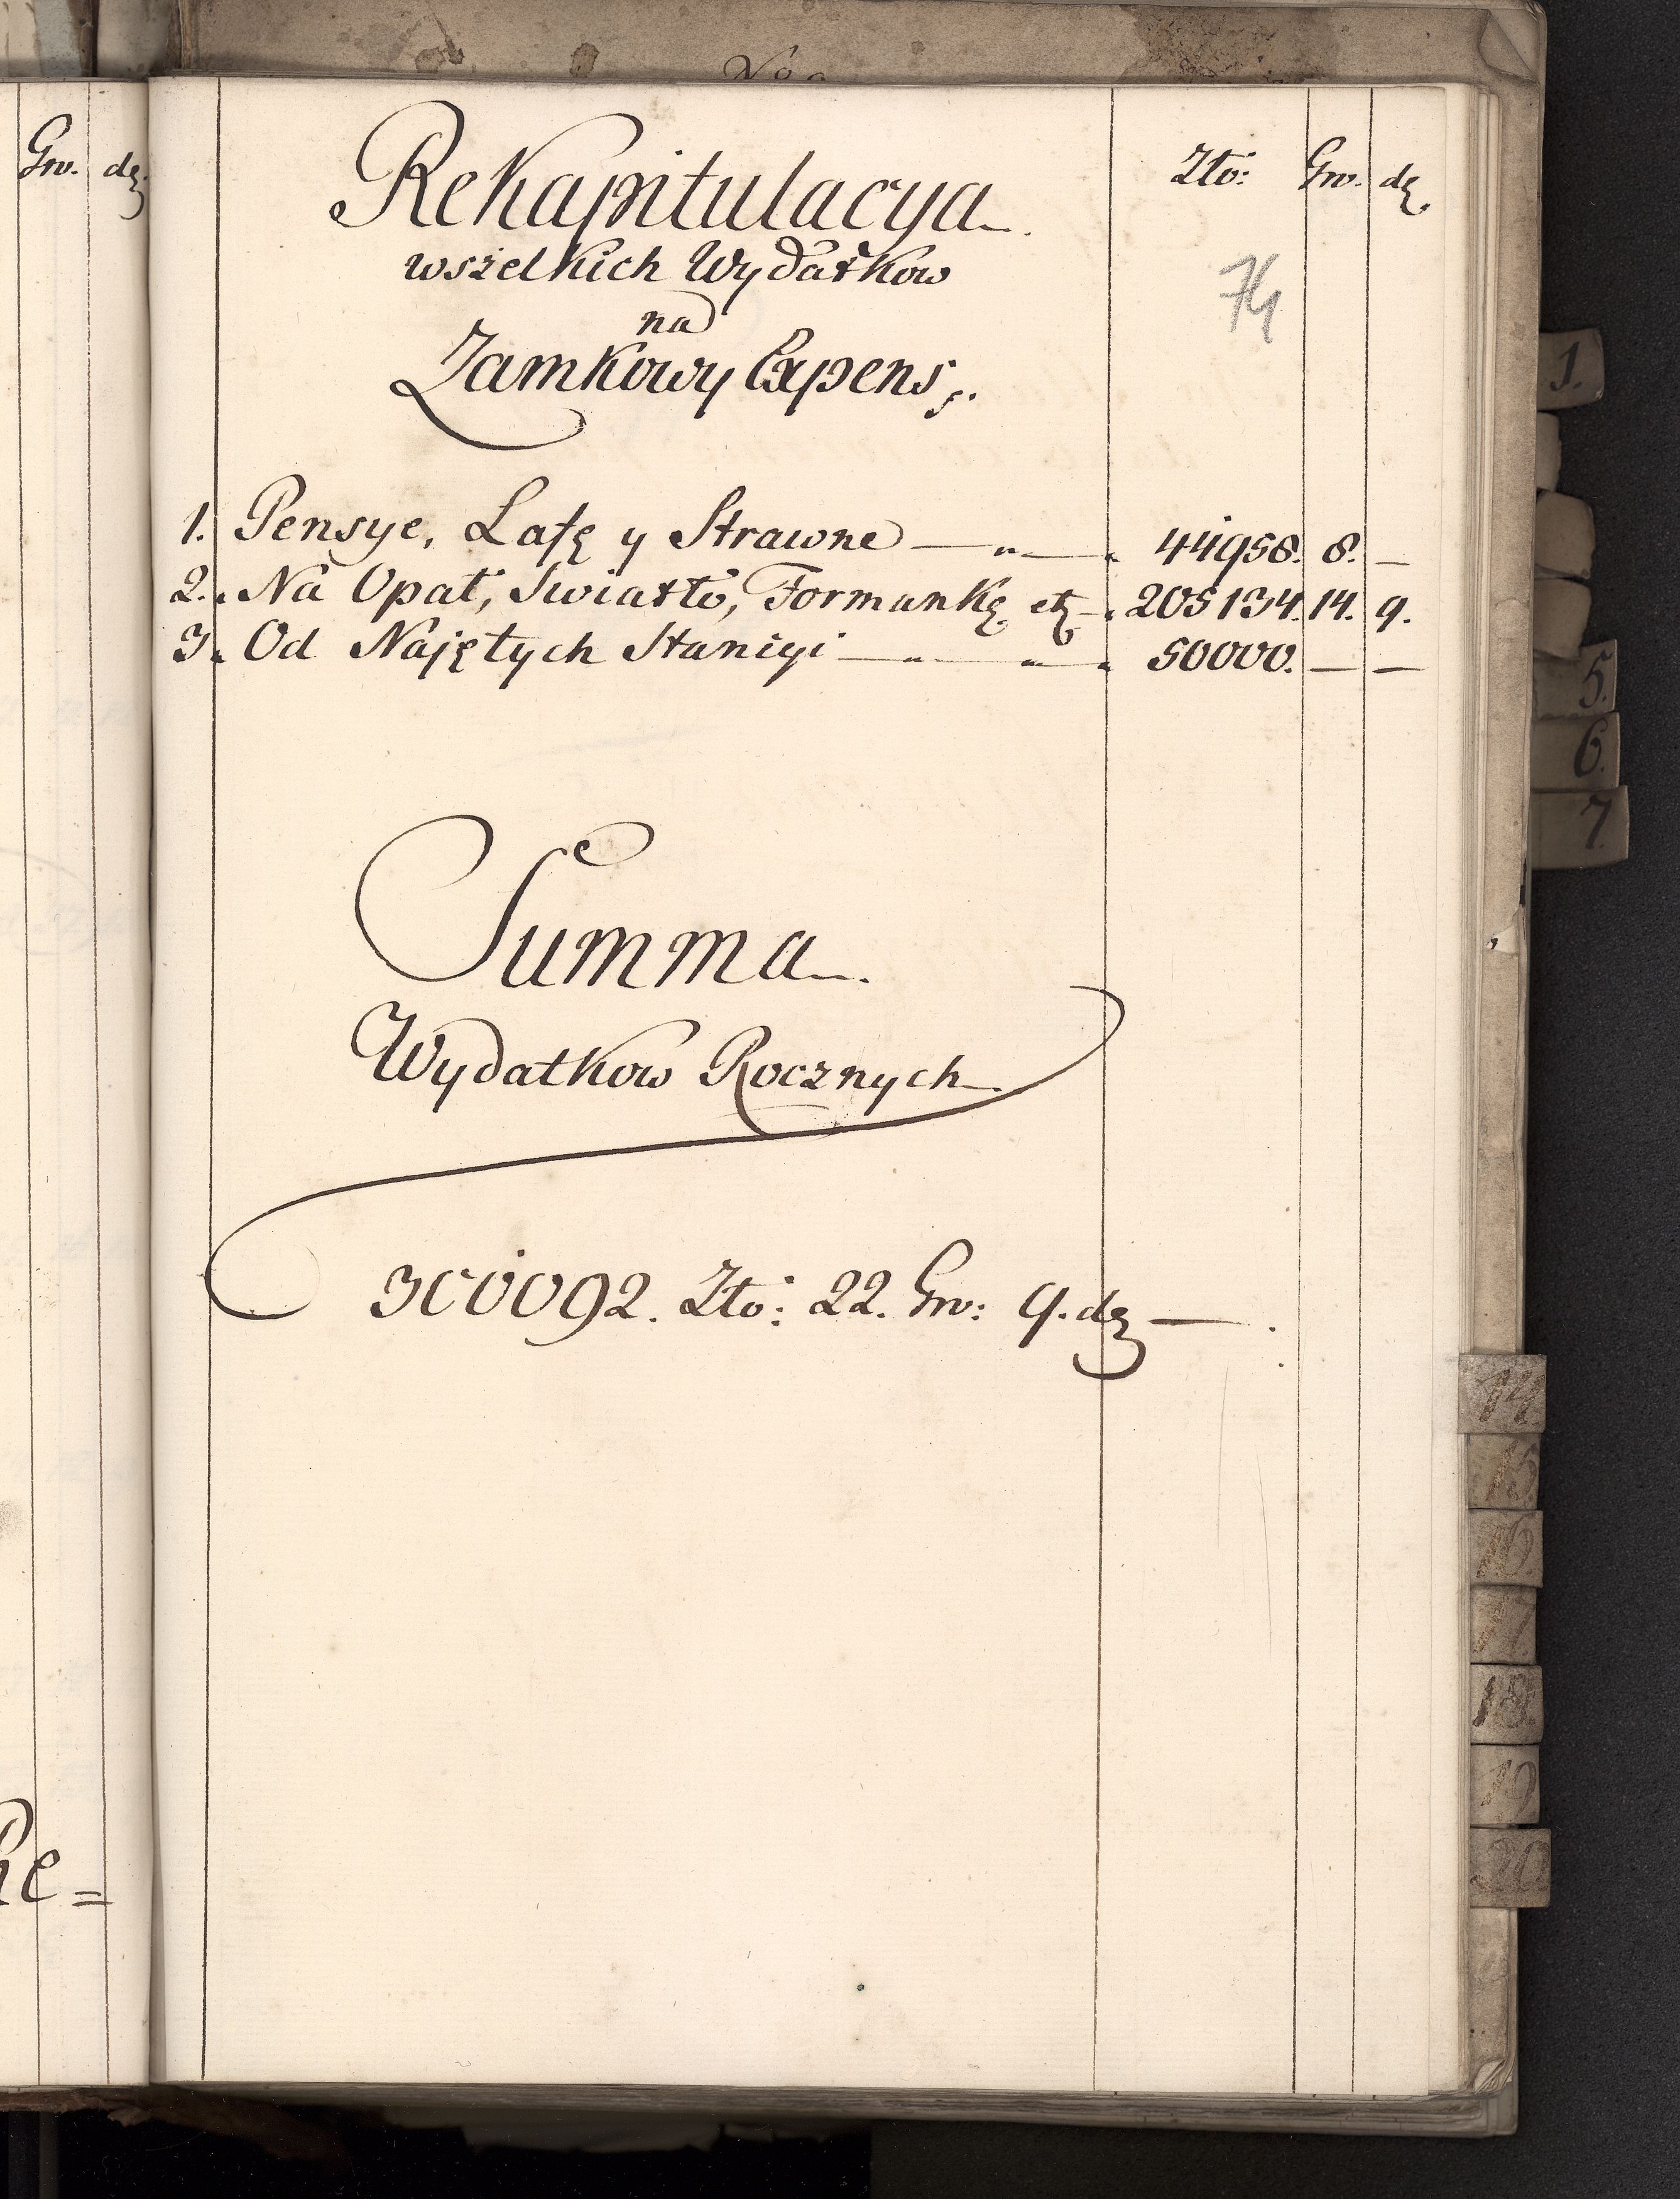 Gro. dę
Rekapitulacya Zło: Gro. dę.
wszelkich Wydatkow
na
Zamkowy Expens.
74
1. Pensye, Lafę y Strawne — „ — 44958. 8. —
2. Na Opał, Swiatło, Formankę etc 205134. 14. 9.
3. Od Najętych Stancyi — „ — „ — 50000. — —
Summa
Wydatkow Rocznych
300092. Zło: 22. Gro: 9. dę —
Re=
1.
5.
6.
7.
14
15.
16
17
18.
19
20